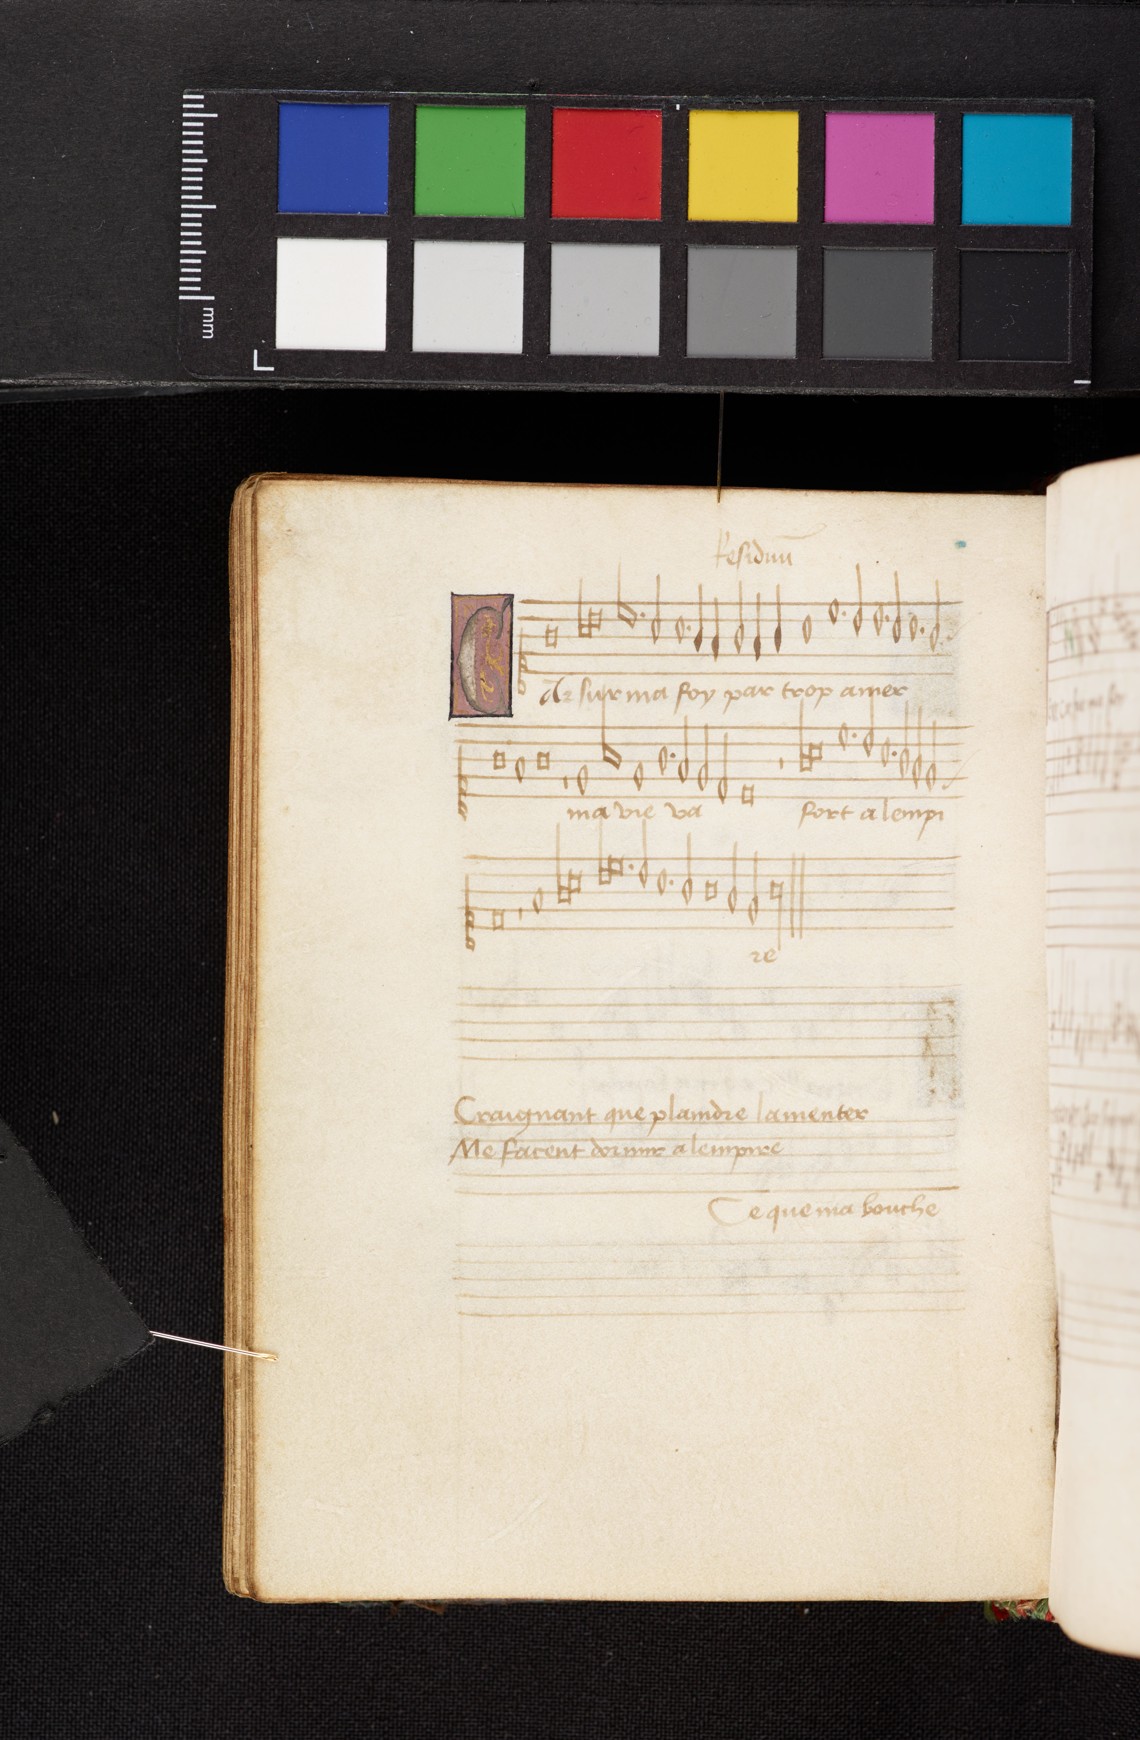 mm
Residuū
Car sur ma foy par trop amer
ma vie va fort a lempi
re
Craignant que plaindre lamenter
Me facent dormir a lempire
Ce que ma bouche